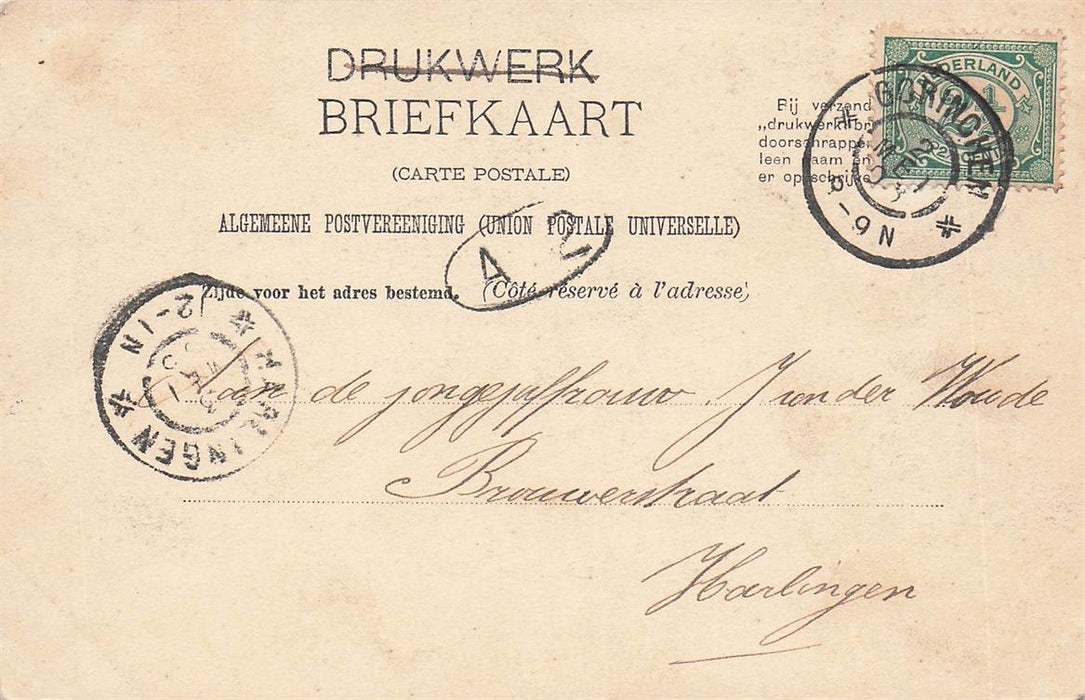 DRUKWERK
BRIEFKAART
(CARTE POSTALE)
ALGEMEENE POSTVEREENIGING (UNION POSTALE UNIVERSELLE)
Zijde voor het adres bestemd. (Côté réservé à l'adresse)
Bij verzend
„drukwerk" br
doorschrappe
leen naam en
er op schrijke
NEDERLAND
1
GORINCHEM
8-9N
A
HARLINGEN
12-1N
Aan de jongejuffrouw J van der Woude
Brouwerstraat
Harlingen